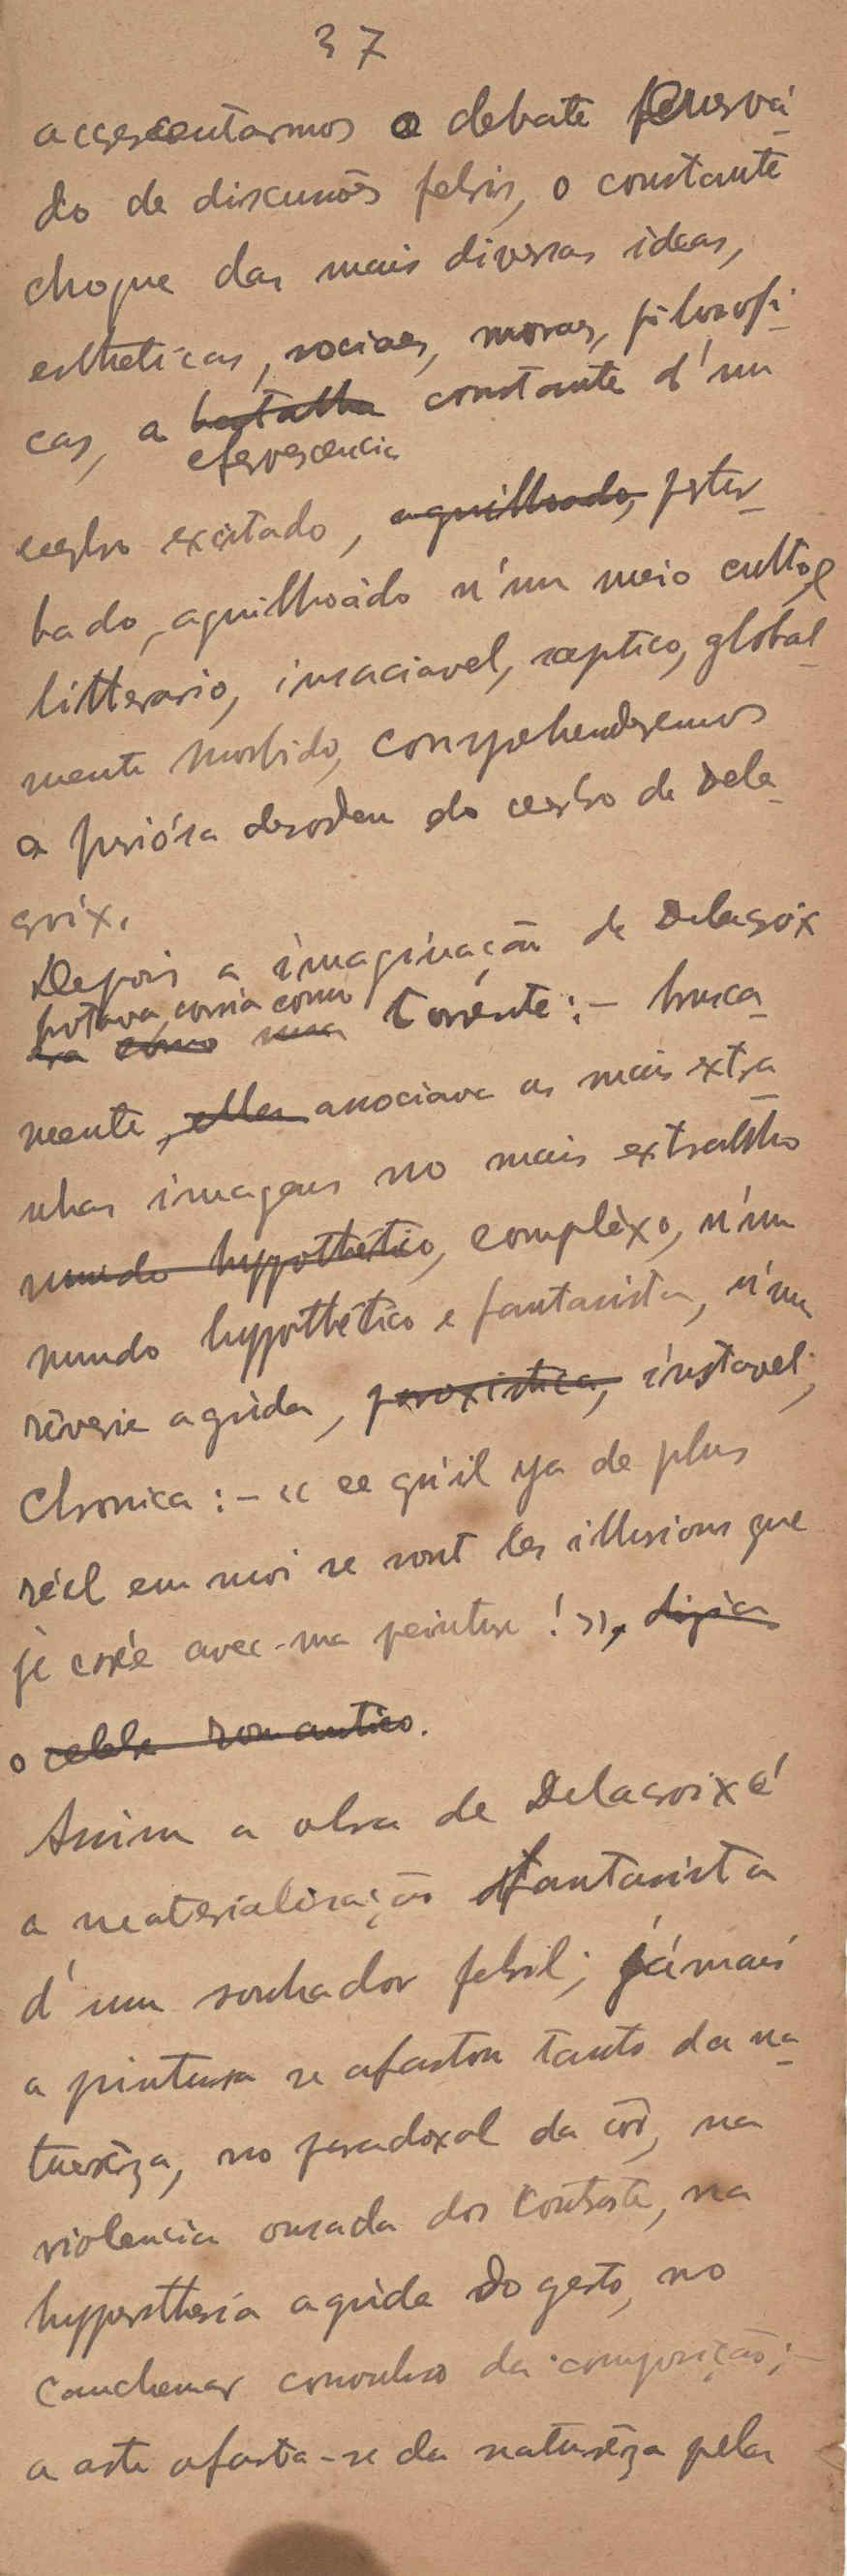 37
accrescentarmos o debate
do de discussões febris, o constante
choque das mais diversas ideas,
estheticas, sociaes, moraes, filosofi-
cas, a batalha constante d'um
efervescencia
cerebro excitado, aguilhoado, pertur-
bado, aguilhoádo n'um meio culto, e
litterario, insaciavel, sceptico, global-
mente morbido, comprehenderemos
a furiósa desordem do cerebro de Dela-
croix.
Depois a imaginação de Delacroix
brotava, corria como
era como uma torrente: - brusca-
mente, ella associava as mais extra-
nhas imagens no mais extranho
mundo hyppothetico, complèxo, n'um
mundo hyppothetico e fantasista, n'um
rêverie aguda, paroxistica, instavel,
chronica: - « ce qu'il y a de plus
réel em moi ce sont les illusions que
je crée avec ma peinture! », dizia
o celebre romantico.
Assim a obra de Delacroix é
a materialisação fantasista
d'um sonhador febril; jámais
a pintura se afastou tanto da na-
turêza, no paradoxal da côr, na
violencia ousada dos contraste, na
hypperesthesia aguda do gesto, no
cauchemar convulso da composição; -
a arte afasta-se da naturêza pela